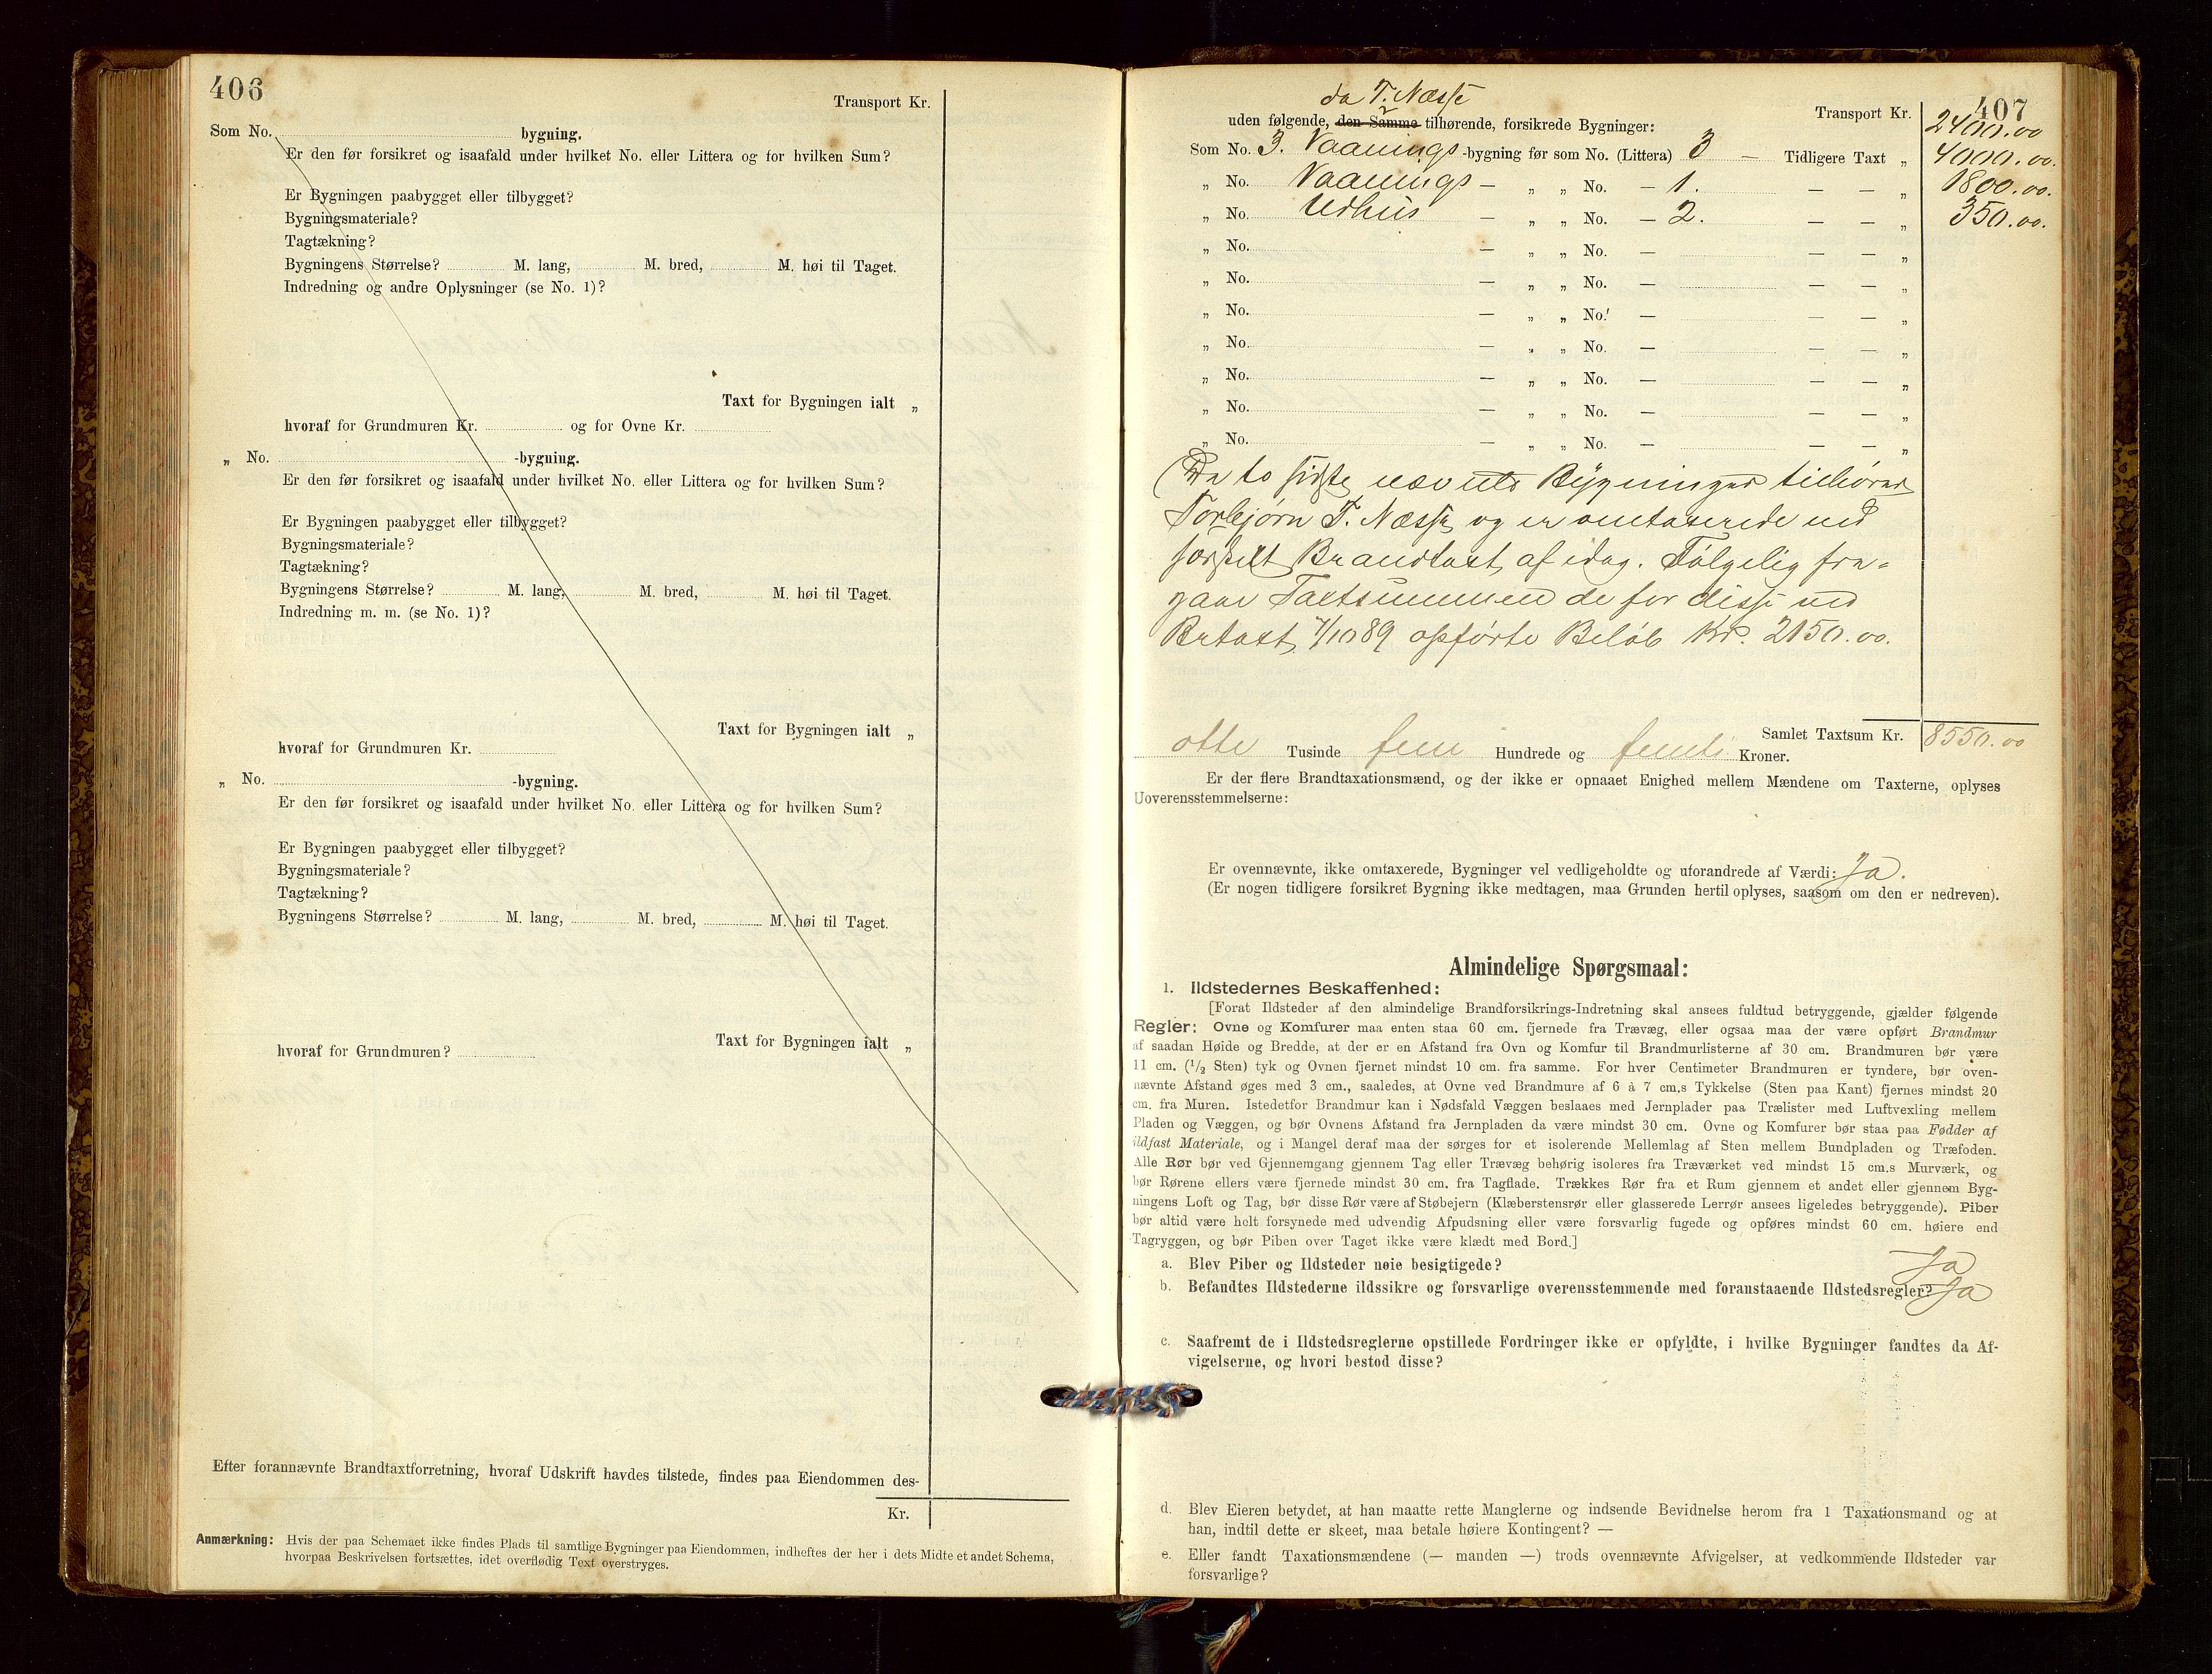 406
Transport Kr.
Som No. bygning.
Er den før forsikret og isaafald under hvilket No. eller Littera og for hvilken Sum?
Er Bygningen paabygget eller tilbygget?
Bygningsmateriale?
Tagtækning?
Bygningens Størrelse? M. lang, M. bred, M. høi til Taget.
Indredning og andre Oplysninger (se No. 1)?
Taxt for Bygningen ialt „
hvoraf for Grundmuren Kr. og for Ovne Kr.
„ No. -bygning.
Er den før forsikret og isaafald under hvilket No. eller Littera og for hvilken Sum?
Er Bygningen paabygget eller tilbygget?
Bygningsmateriale?
Tagtækning?
Bygningens Størrelse? M. lang, M. bred, M. høi til Taget.
Indredning m. m. (se No. 1)?
Taxt for Bygningen ialt „
hvoraf for Grundmuren Kr.
„ No. -bygning.
Er den før forsikret og isaafald under hvilket No. eller Littera og for hvilken Sum?
Er Bygningen paabygget eller tilbygget?
Bygningsmateriale?
Tagtækning?
Bygningens Størrelse? M. lang, M. bred, M. høi til Taget.
Taxt for Bygningen ialt „
hvoraf for Grundmuren?
Efter forannævnte Brandtaxtforretning, hvoraf Udskrift havdes tilstede, findes paa Eiendommen des-
Kr.
Anmærkning: Hvis der paa Schemaet ikke findes Plads til samtlige Bygninger paa Eiendommen, indheftes der her i dets Midte et andet Schema,
hvorpaa Beskrivelsen fortsættes, idet overflødig Text overstryges.
407
da T. Næsse
Transport Kr. 2400.00
uden følgende, den Samme tilhørende, forsikrede Bygninger:
Som No. 3. Vaanings -bygning før som No. (Littera) 3 — Tidligere Taxt „ 4000.00.
„ No. Vaanings — „ „ No. — 1. — — „ 1800.00.
„ No. Udhus — „ „ No. — 2. — — „ 350.00.
„ No. — „ „ No. — — — „
„ No. — „ „ No. — — — „
„ No. — „ „ No. — — — „
„ No. — „ „ No. — — — „
„ No. — „ „ No. — — — „
„ No. — „ „ No. — — — „
„ No. — „ „ No. — — — „
(De to sidste nævnte Bygninger tilhører
Torbjørn T. Næsse og er omtaxerede ved
særskilt Brandtaxt af idag. Følgelig fra-
gaar Taxtsummen de for disse ved
Br.taxt 7/10 89 opførte Beløb Kr. 2150.00.
Samlet Taxtsum Kr. 8550.00
otte Tusinde fem Hundrede og femti Kroner.
Er der flere Brandtaxationsmænd, og der ikke er opnaaet Enighed mellem Mændene om Taxterne, oplyses
Uoverensstemmelserne:
Er ovennævnte, ikke omtaxerede, Bygninger vel vedligeholdte og uforandrede af Værdi: Ja.
(Er nogen tidligere forsikret Bygning ikke medtagen, maa Grunden hertil oplyses, saasom om den er nedreven).
Almindelige Spørgsmaal:
1. Ildstedernes Beskaffenhed:
[Forat Ildsteder af den almindelige Brandforsikrings-Indretning skal ansees fuldtud betryggende, gjælder følgende
Regler: Ovne og Komfurer maa enten staa 60 cm. fjernede fra Trævæg, eller ogsaa maa der være opført Brandmur
af saadan Høide og Bredde, at der er en Afstand fra Ovn og Komfur til Brandmurlisterne af 30 cm. Brandmuren bør være
11 cm. (1/2 Sten) tyk og Ovnen fjernet mindst 10 cm. fra samme. For hver Centimeter Brandmuren er tyndere, bør oven-
nævnte Afstand øges med 3 cm., saaledes, at Ovne ved Brandmure af 6 à 7 cm.s Tykkelse (Sten paa Kant) fjernes mindst 20
cm. fra Muren. Istedetfor Brandmur kan i Nødsfald Væggen beslaaes med Jernplader paa Trælister med Luftvexling mellem
Pladen og Væggen, og bør Ovnens Afstand fra Jernpladen da være mindst 30 cm. Ovne og Komfurer bør staa paa Fødder af
ildfast Materiale, og i Mangel deraf maa der sørges for et isolerende Mellemlag af Sten mellem Bundpladen og Træfoden.
Alle Rør bør ved Gjennemgang gjennem Tag eller Trævæg behørig isoleres fra Træværket ved mindst 15 cm.s Murværk, og
bør Rørene ellers være fjernede mindst 30 cm. fra Tagflade. Trækkes Rør fra et Rum gjennem et andet eller gjennem Byg-
ningens Loft og Tag, bør disse Rør være af Støbejern (Klæberstensrør eller glasserede Lerrør ansees ligeledes betryggende). Piber
bør altid være helt forsynede med udvendig Afpudsning eller være forsvarlig fugede og opføres mindst 60 cm. høiere end
Tagryggen, og bør Piben over Taget ikke være klædt med Bord.]
a. Blev Piber og Ildsteder nøie besigtigede? Ja
b. Befandtes Ildstederne ildssikre og forsvarlige overensstemmende med foranstaaende Ildstedsregler? Ja
c. Saafremt de i Ildstedsreglerne opstillede Fordringer ikke er opfyldte, i hvilke Bygninger fandtes da Af-
vigelserne, og hvori bestod disse?
d. Blev Eieren betydet, at han maatte rette Manglerne og indsende Bevidnelse herom fra 1 Taxationsmand og at
han, indtil dette er skeet, maa betale høiere Kontingent? —
e. Eller fandt Taxationsmændene (— manden —) trods ovennævnte Afvigelser, at vedkommende Ildsteder var
forsvarlige?